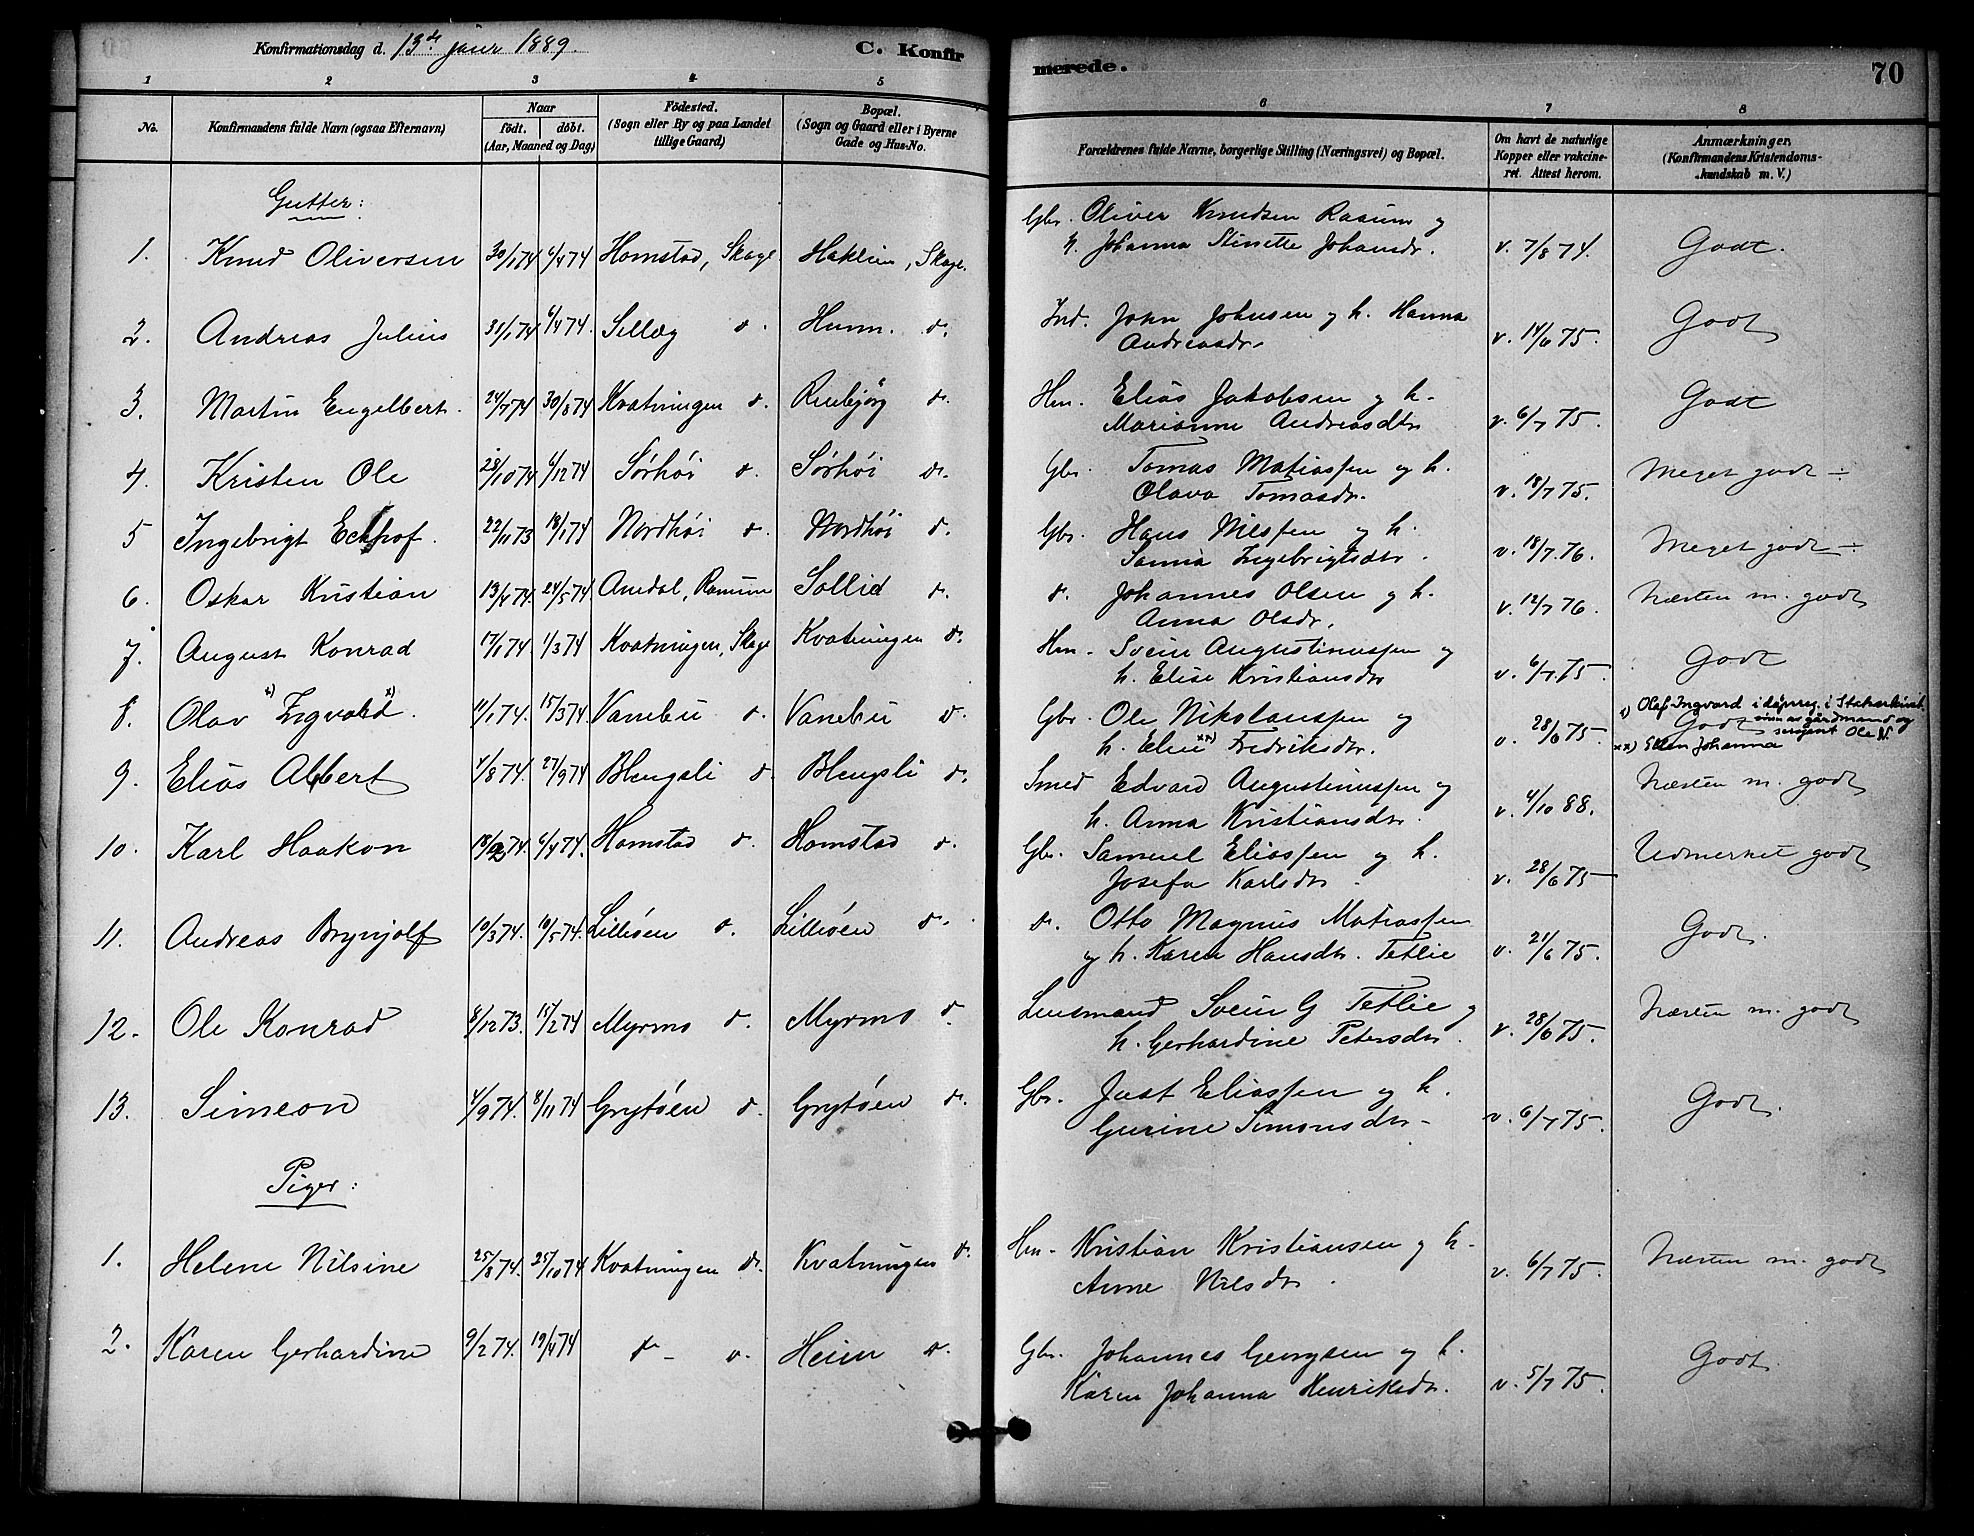 Konfirmationsdag d. 13de januar 1889. C. Konfirmerede. 70
1 2 3 4 5 6 7 8
No. Konfirmandens fulde Navn (ogsaa Efternavn) Naar født. døbt. (Aar, Maaned og Dag) Fødested. (Sogn eller By og paa Landet tillige Gaard) Bopæl. (Sogn og Gaard eller i Byerne Gade og Hus-No. Forældrenes fulde Navne, borgerlige Stilling (Næringsvei) og Bopæl. Om havt de naturlige Kopper eller vakcineret. Attest herom. Anmærkninger. (Konfirmandens Kristendomskundskab m. V.)
Gutter:
1. Knud Oliversen 30/1 74 6/4 74 Homstad, Skage Haklien, Skage. Gbr. Oliver Knudsen Rasum og
h. Johanna Stinette Johansdr. v. 7/8 74. Godt.
2. Andreas Julius 6/4 74. Sellæg d. Hunn. d. Ind. John Johnsen og h. Hanna
Andreasdr. v. 14/6 75. Godt
3. Martin Engelbert. 24/7 74 30/8 74 Kvatningen d. Rubjørg d. Hm. Elias Jakobsen og h.
Marianne Andreasdtr v. 6/7 75. Godt
4. Kristen Ole 28/10 74 6/12 74 Sørhøi d. Sørhøi d. Gbr. Tomas Matiassen og h.
Olava Tomasdr. v. 18/7 75. Meget godt ÷
5 Ingebrigt Eckhof. 22/11 73 18/1 74 Nordhøi d. Nordhøi d. Gbr. Hans Nilssen og h.
Sanna Ingebrigtsdtr. v. 18/7 76. Meget godt ÷
6. Oskar Kristian 13/4 74. 24/5 74 Amdal, Ranum Sollid d. d. Johannes Olsen og h.
Anna Olsdr. v. 12/7 76. Næsten m. godt
7. August Konrad 17/1 74 1/3 74 Kvatningen, Skage Kvatningen d. Hm. Svein Augustinussen og
h. Elise Kristiansdr v. 6/7 75. Godt
8. Olav x) Ingvald x). 11/1 74. 15/3 74 Vanebu d. Vanebu d. Gbr. Ole Nikolaussen og
h. Eline xx) Fredriksdr. v. 28/6 75. Godt
x) Olaf Ingvard i dåpsreg. i Statsarkivet.
sønn av gårdmand og
sergent Ole N.
xx) Ellen Johanna
9. Elias Albert 1/8 74. 27/9 74 Blengsli d. Blengsli d. Smed Edvard Augustinussen og
h. Anna Kristiansdr. v. 4/10 88. Næsten m. godt
10. Karl Haakon 18/2 74. 6/4 74. Homstad d. Homstad d. Gbr. Samuel Eliassen og h.
Josefa Karlsdr. v. 28/6 75 Udmerket godt
11. Andreas Brynjolf 10/3 74. 10/5 74. Lilleøen d. Lilleøen d. d. Otto Magnus Matiassen
og h. Karen Hansdr. Tetlie v. 21/6 75. Godt.
12. Ole Konrad 8/12 73. 15/2 74 Myrmo d. Myrmo d. Lensmand Svein G Tetlie og
h. Gerhardine Petersdr. v. 28/6 75. Næsten m. godt
13. Simeon 4/9 74. 8/11 74 Grytøen d. Grytøen d. Gbr. Just Eliassen og h.
Gurine Simonsdr. v. 6/7 75. Godt.
Piger:
1. Helene Nilsine 25/8 74. 25/10 74 Kvatningen d. Kvatningen d. Hm. Kristian Kristiansen og h.
Anne Nilsdr. v. 6/7 75. Næsten m. godt
2. Karen Gerhardine 9/2 74. 19/4 74 d. d. Heim d. Gbr. Johannes Georgsen og h.
Karen Johanna Henriksdr. v. 5/7 75. Godt.